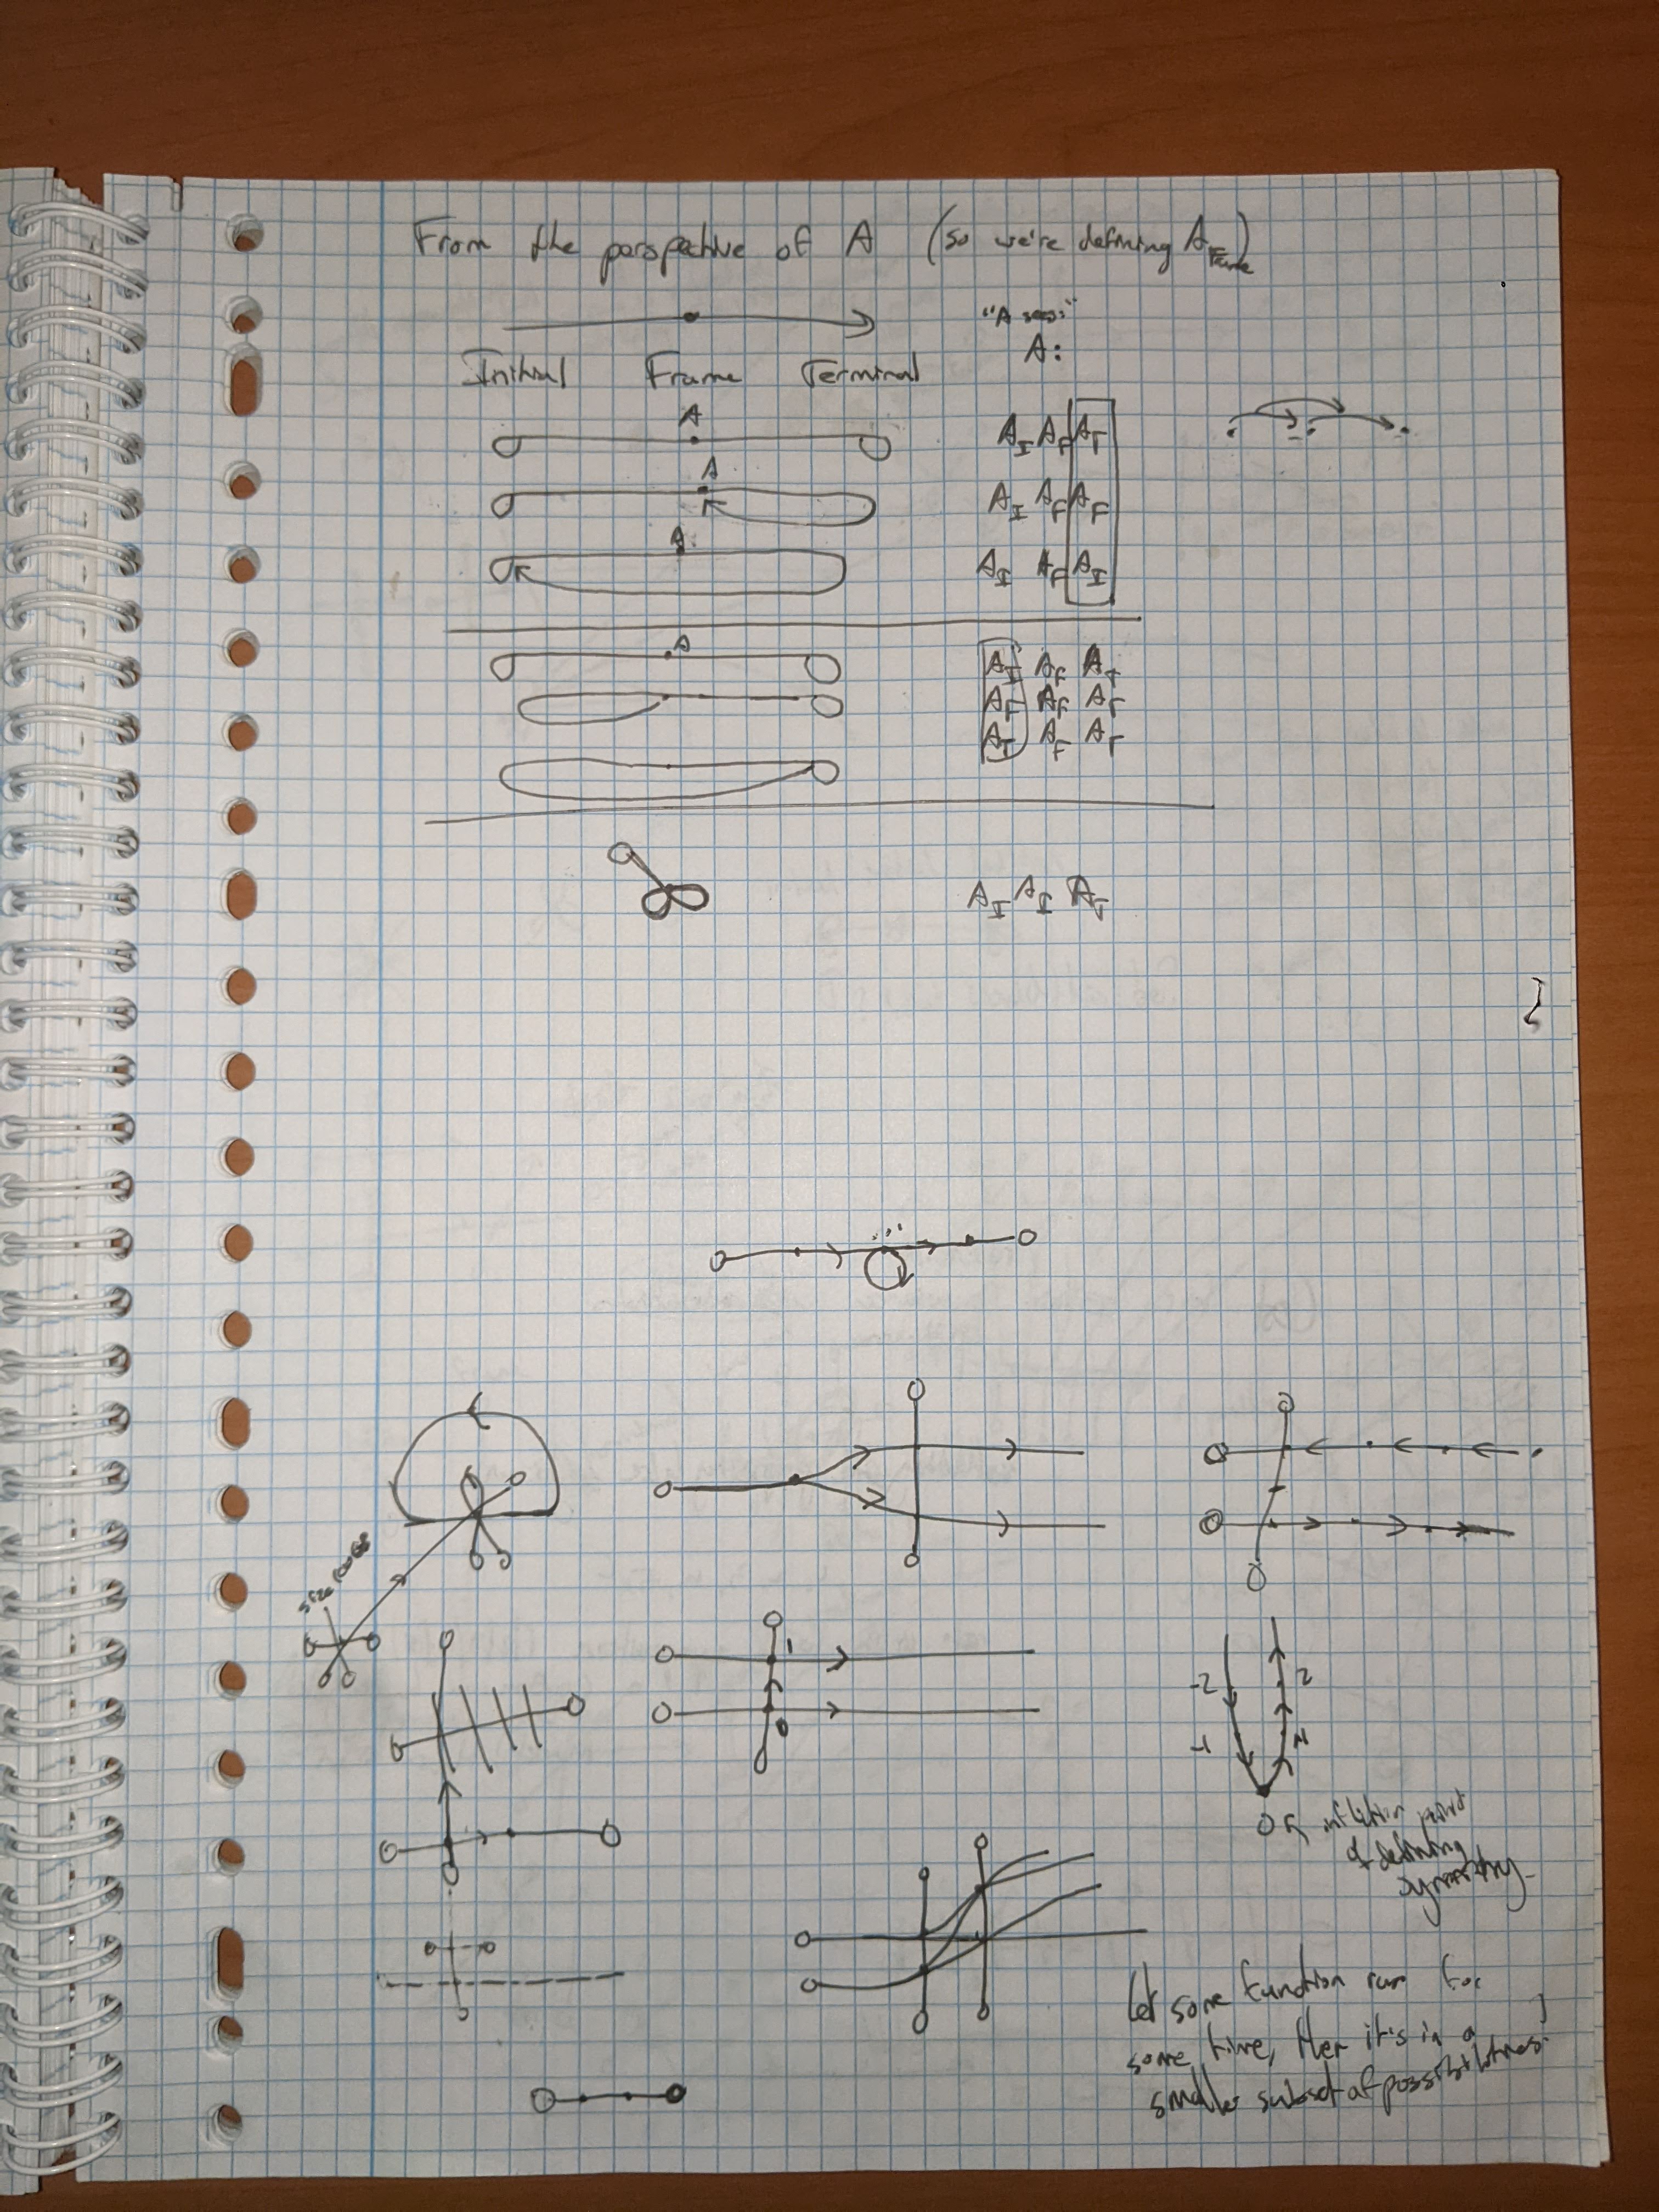 From the perspective of A (so we're defining A_Frame)
"A sees"
A:
Initial Frame Terminal
A
A_I A_F A_T
A
A_I A_F A_F
A
A_I A_F A_I
A
A_I A_F A_T
A_F A_F A_T
A_I A_F A_T
A_I A_I A_T
1
0
-2 2
-1
0
inflection point
of defining
symmetry
Let some function run for
some time, then it's in a
smaller subset of possibilities